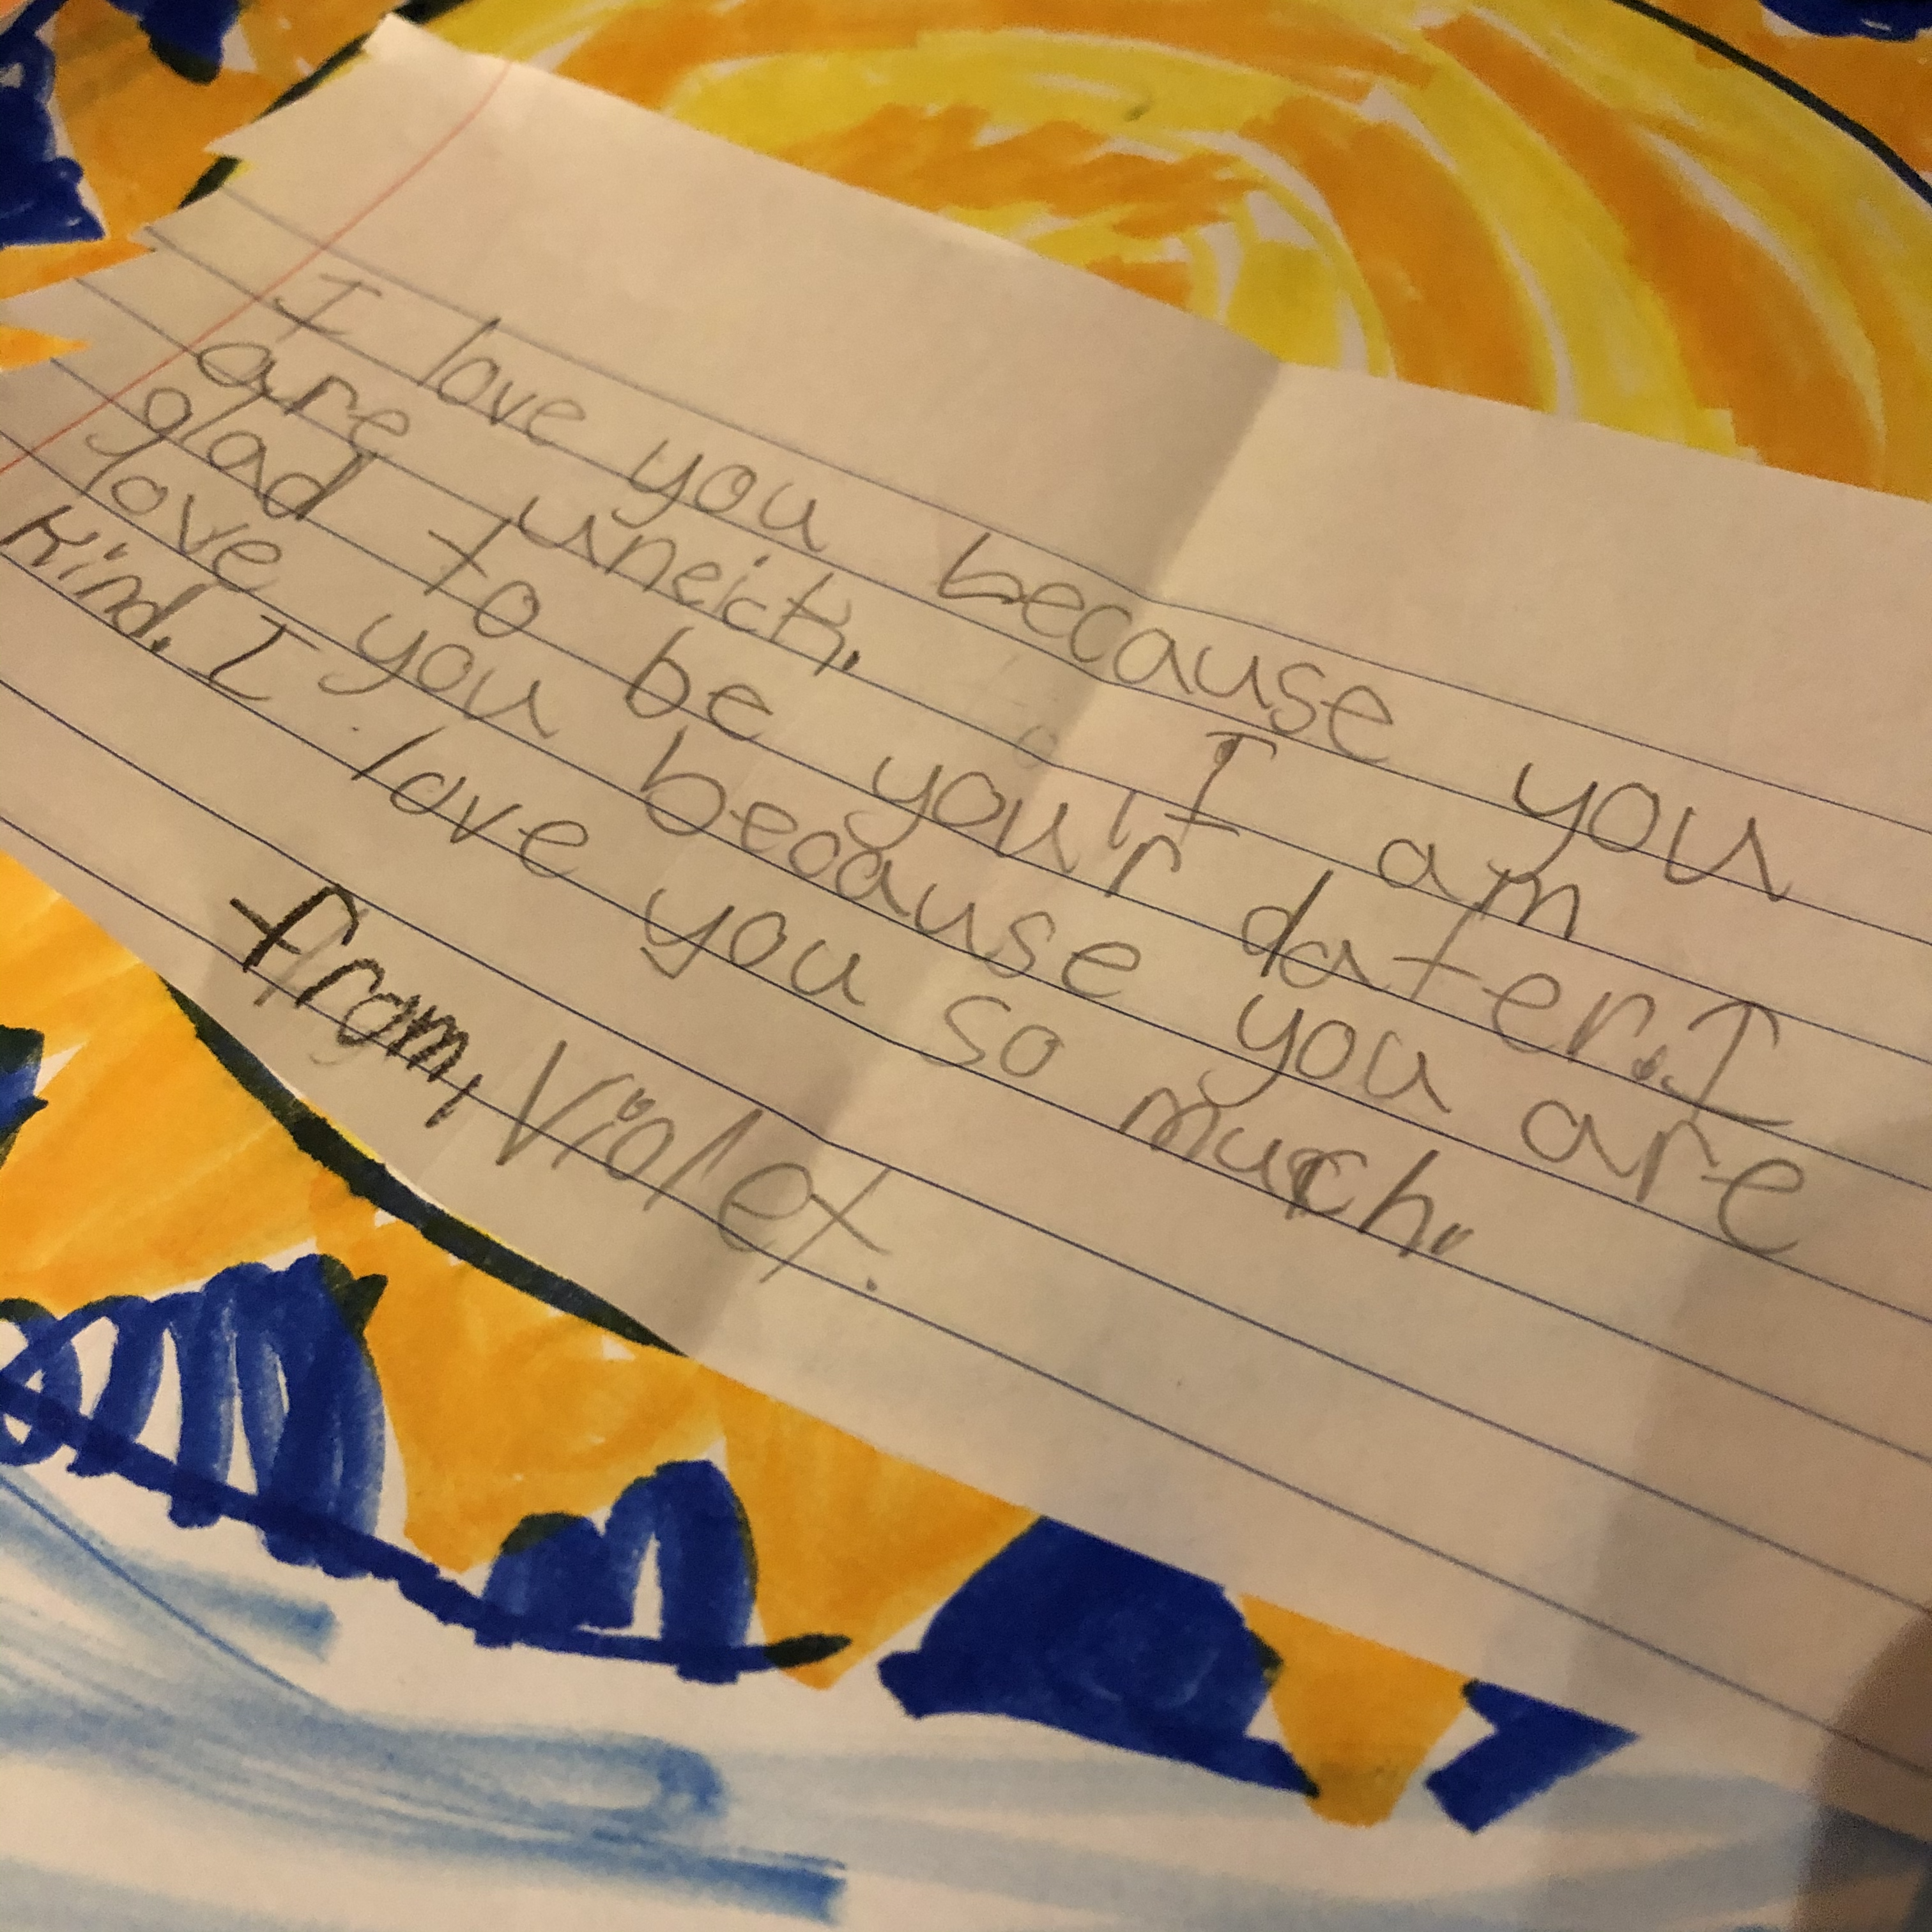 I love you because you
are uneick. I am
glad to be your dater. I
love you because you are
kind. I love you so much.
from, Violet.